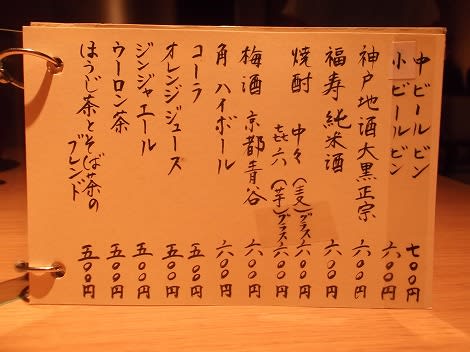 中ビールビン 七〇〇円
小ビールビン 六〇〇円
神戸地酒大黒正宗 六〇〇円
福寿 純米酒 六〇〇円
焼酎 中々(麦)グラス 六〇〇円
㐂六(芋)グラス 六〇〇円
梅酒 京都青谷 六〇〇円
角 ハイボール 六〇〇円
コーラ 五〇〇円
オレンジジュース 五〇〇円
ジンジャエール 五〇〇円
ウーロン茶 五〇〇円
ほうじ茶とそば茶の
ブレンド 五〇〇円